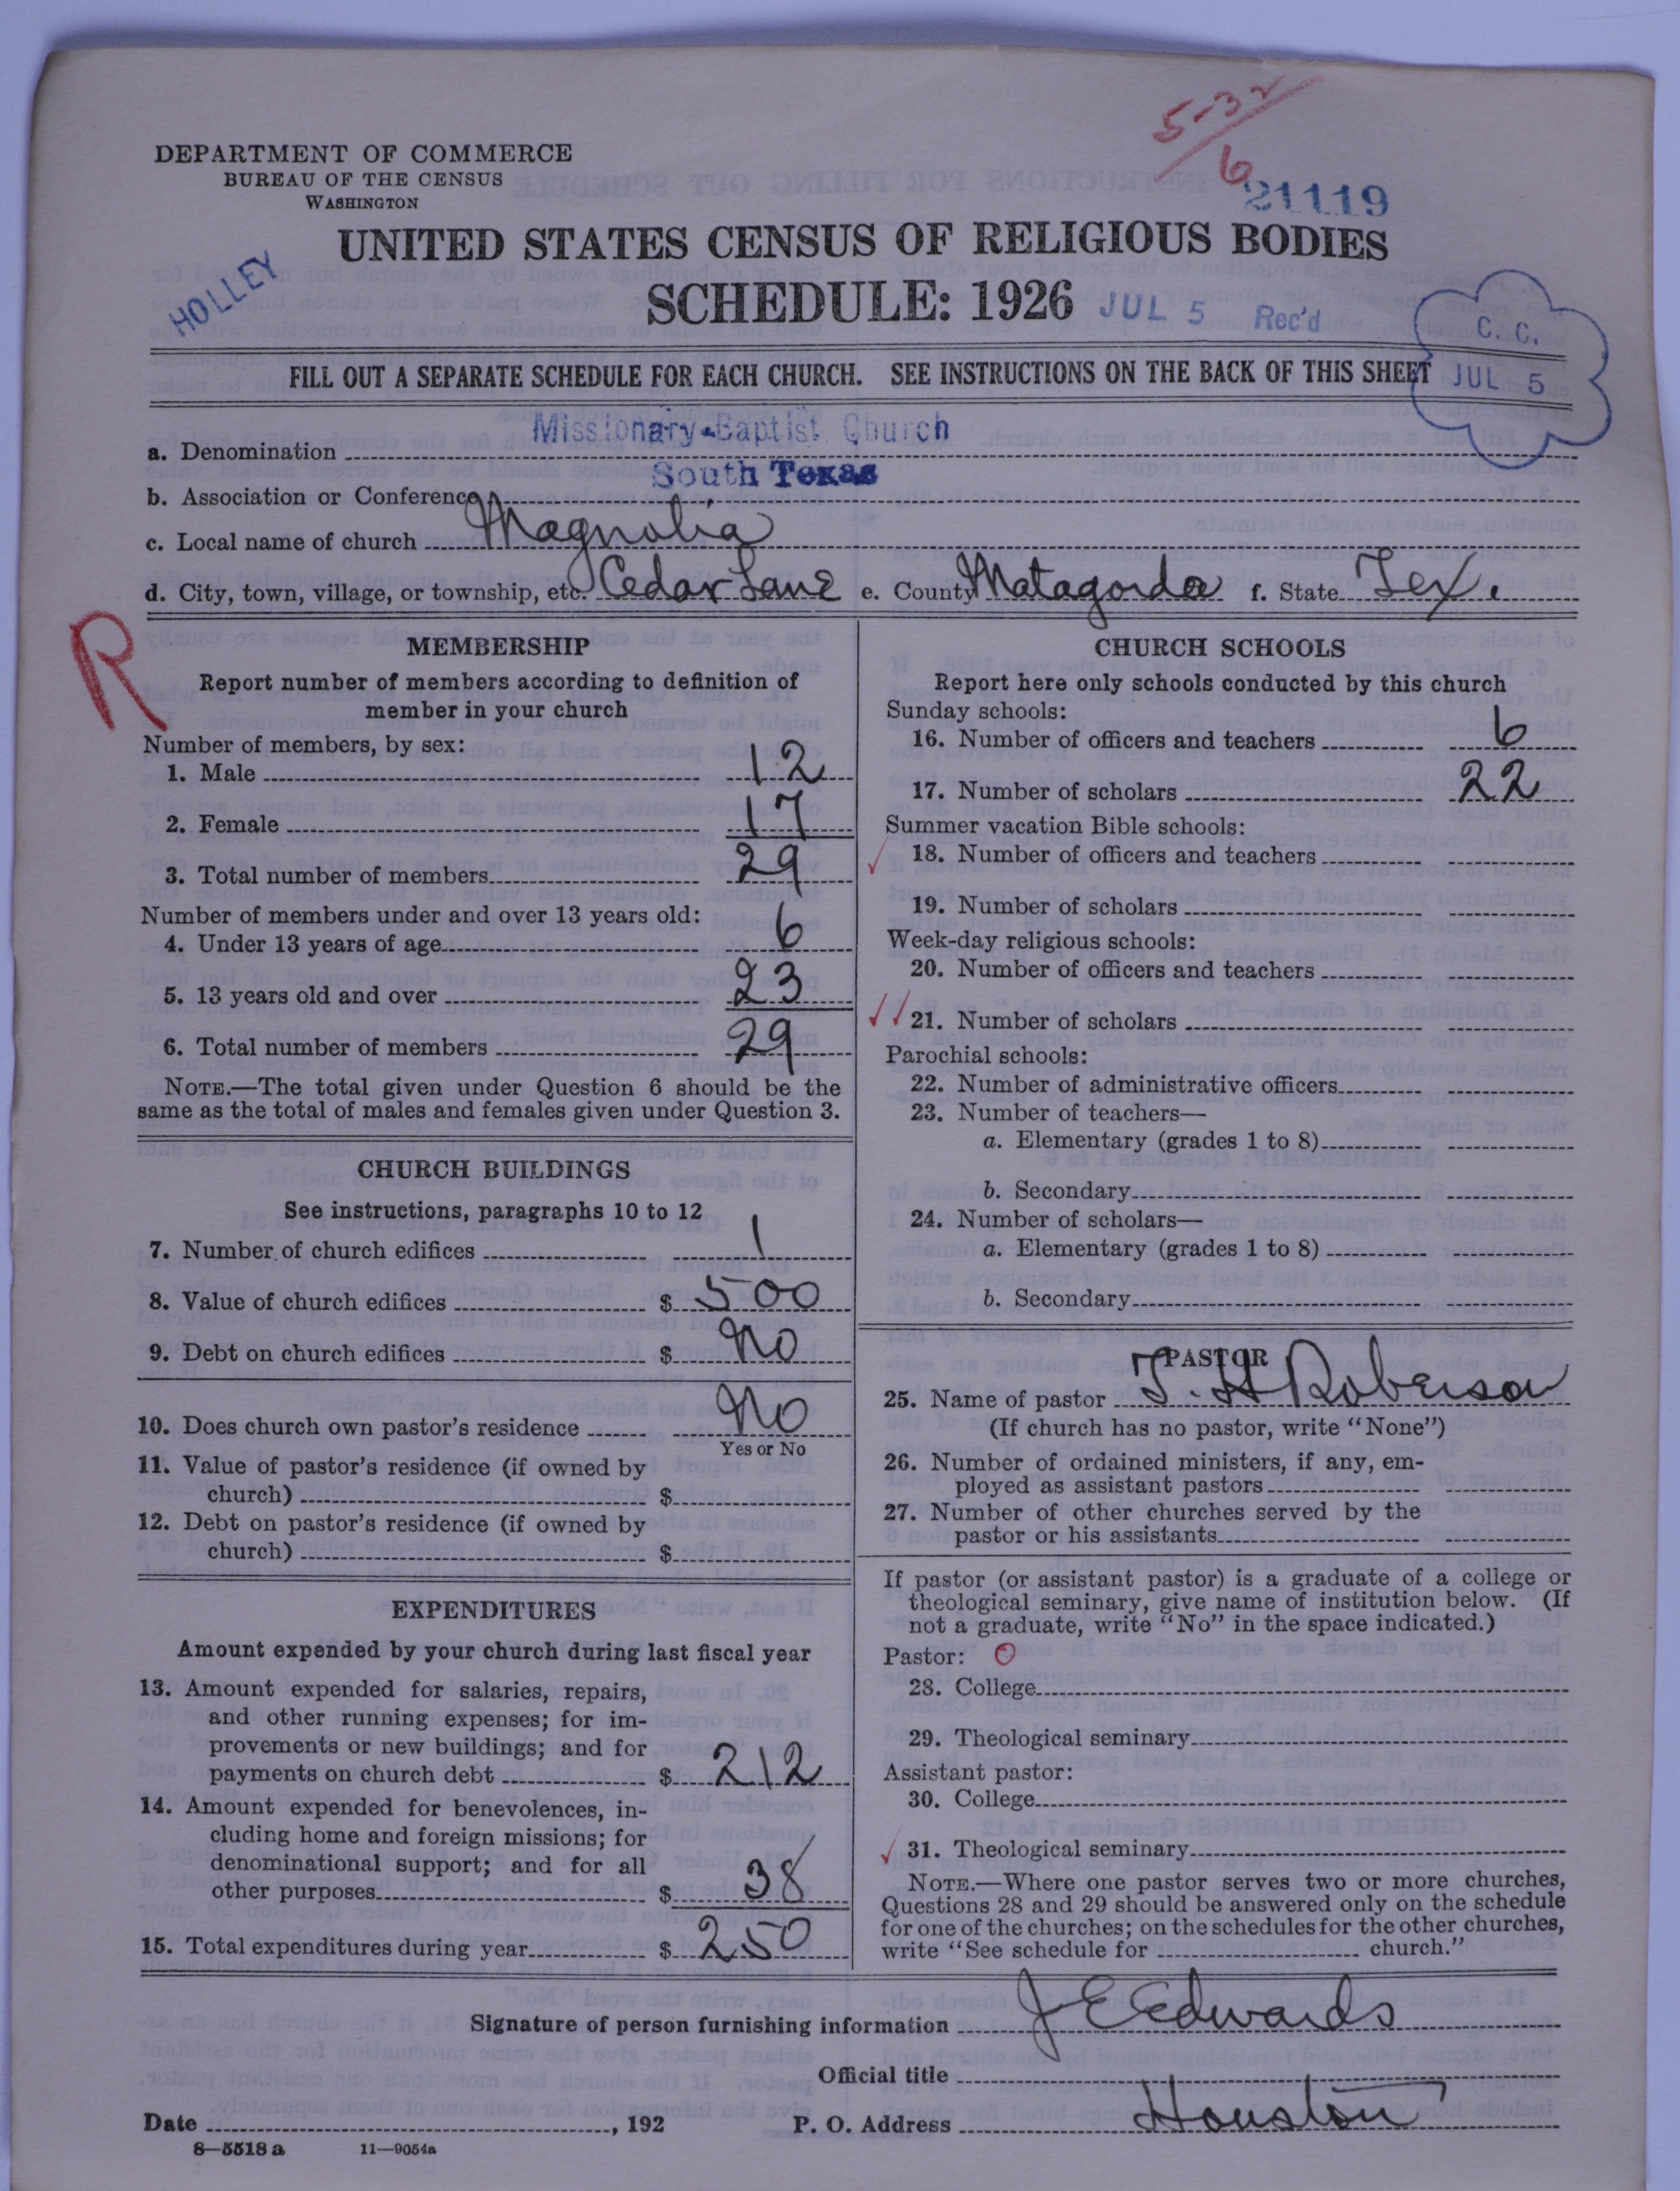 5-32
6
DEPARTMENT OF COMMERCE
BUREAU OF THE CENSUS
WASHINGTON
21119
UNITED STATES CENSUS OF RELIGIOUS BODIES
HOLLEY
SCHEDULE: 1926 JUL 5 Rec'd
C. C.
JUL 5
FILL OUT A SEPARATE SCHEDULE FOR EACH CHURCH. SEE INSTRUCTIONS ON THE BACK OF THIS SHEET
a. Denomination Missionary-Baptist Church
b. Association or Conference South Texas
c. Local name of church Magnolia
d. City, town, village, or township, etc. Cedar Lane e. County Matagorda f. State Tex.
R
MEMBERSHIP
Report number of members according to definition of
member in your church
Number of members, by sex:
1. Male 12
2. Female 17
3. Total number of members 29
Number of members under and over 13 years old:
4. Under 13 years of age 6
5. 13 years old and over 23
6. Total number of members 29
NOTE.—The total given under Question 6 should be the
same as the total of males and females given under Question 3.
CHURCH BUILDINGS
See instructions, paragraphs 10 to 12
7. Number of church edifices 1
8. Value of church edifices $ 500
9. Debt on church edifices $ No
10. Does church own pastor's residence No
Yes or No
11. Value of pastor's residence (if owned by
church) $
12. Debt on pastor's residence (if owned by
church) $
EXPENDITURES
Amount expended by your church during last fiscal year
13. Amount expended for salaries, repairs,
and other running expenses; for im-
provements or new buildings; and for
payments on church debt $ 212
14. Amount expended for benevolences, in-
cluding home and foreign missions; for
denominational support; and for all
other purposes $ 38
15. Total expenditures during year $ 250
CHURCH SCHOOLS
Report here only schools conducted by this church
Sunday schools:
16. Number of officers and teachers 6
17. Number of scholars 22
Summer vacation Bible schools:
18. Number of officers and teachers
19. Number of scholars
Week-day religious schools:
20. Number of officers and teachers
21. Number of scholars
Parochial schools:
22. Number of administrative officers
23. Number of teachers—
a. Elementary (grades 1 to 8)
b. Secondary
24. Number of scholars—
a. Elementary (grades 1 to 8)
b. Secondary
PASTOR
25. Name of pastor T. H Roberson
(If church has no pastor, write "None")
26. Number of ordained ministers, if any, em-
ployed as assistant pastors
27. Number of other churches served by the
pastor or his assistants
If pastor (or assistant pastor) is a graduate of a college or
theological seminary, give name of institution below. (If
not a graduate, write "No" in the space indicated.)
Pastor: O
28. College
29. Theological seminary
Assistant pastor:
30. College
31. Theological seminary
NOTE.—Where one pastor serves two or more churches,
Questions 28 and 29 should be answered only on the schedule
for one of the churches; on the schedules for the other churches,
write "See schedule for church."
Signature of person furnishing information J E Edwards
Official title
Date , 192 P. O. Address Houston
8—5518 a 11—9054a